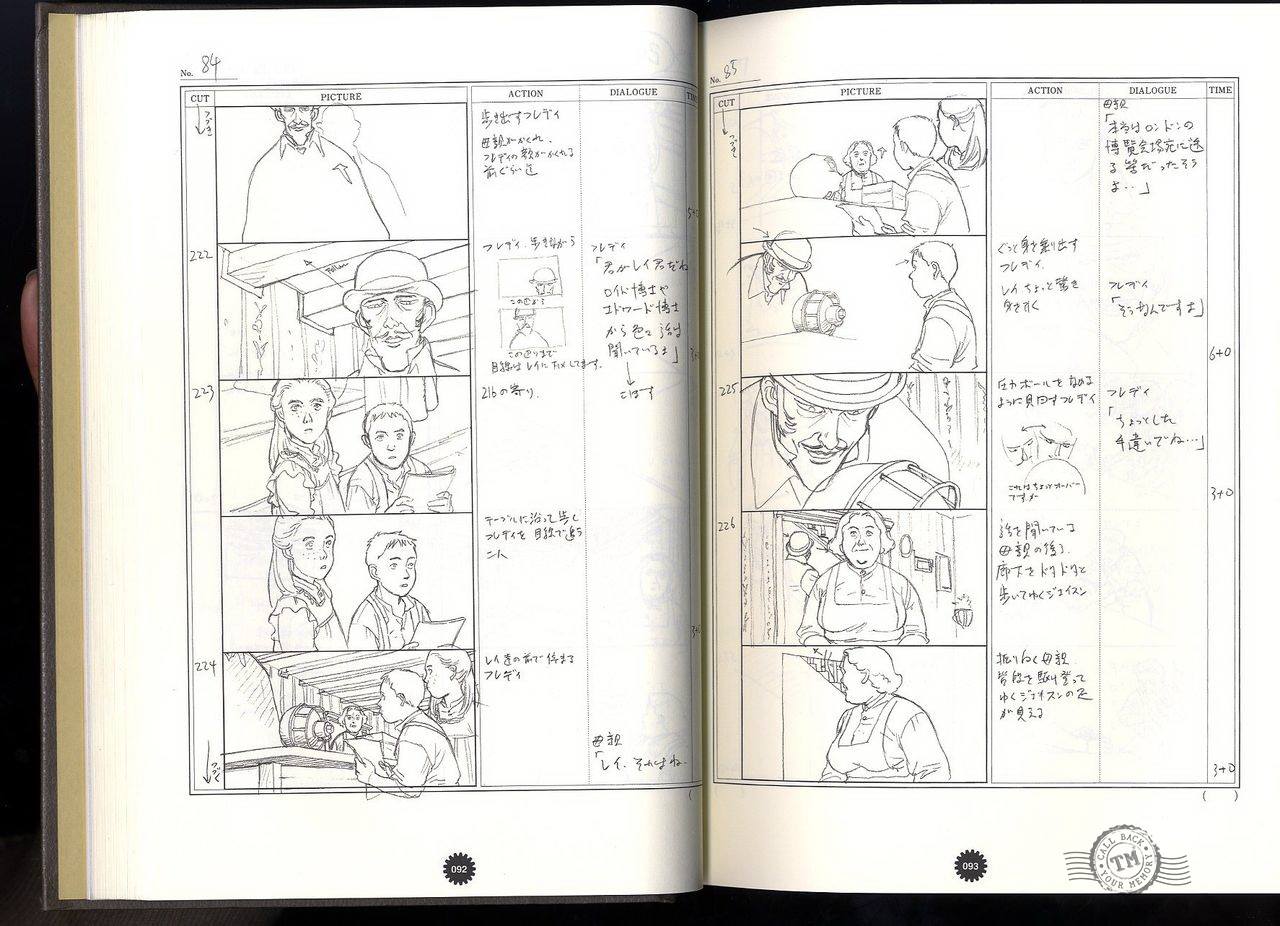 No. 84
CUT
PICTURE
ACTION
DIALOGUE
つづき
歩き出すフレディ
母親がかくれ、
フレディの顔がかくれる
前ぐらい迄
222
Follow
フレディ、歩きながら
この辺より
この辺りまで
フレディ
「君がレイ君だね
ロイド博士や
エドワード博士
から色々話は
聞いているよ」
こぼす
223
216の寄り.
テーブルに沿って歩く
フレディを目線で追う
二人
224
レイ達の前で停まる
フレディ
母親
「レイ、それはね
つづく
092
No. 85
CUT
PICTURE
ACTION
DIALOGUE
TIME
つづき
母親
「本当はロンドンの
博覧会場宛に送
る筈だったそう
よ…」
ぐっと身を乗り出す
フレディ.
レイちょっと驚き
身を引く
フレディ
「そうなんですよ」
6+0
225
圧力ボールをなめる
ように見回すフレディ
これはちょっとオーバー
ですが
フレディ
「ちょっとした
手違いでね…」
3+0
226
話を聞いている
母親の後ろ.
廊下をドタドタと
歩いてゆくジェイスン
振りむく母親.
階段を駆け登って
ゆくジェイスンの足
が見える
3+0
( )
093
CALL BACK
TM
YOUR MEMORY